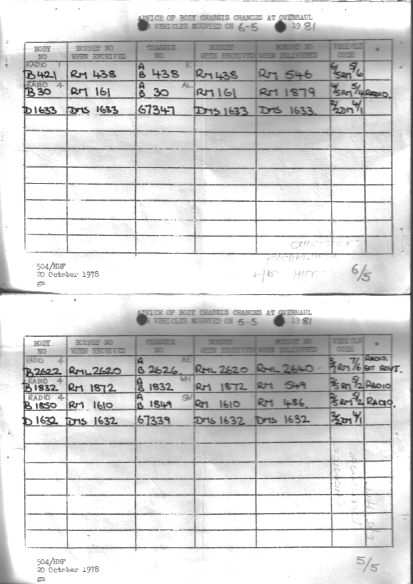 ADVICE OF BODY CHASSIS CHANGES AT OVERHAUL
VEHICLES MOUNTED ON 6-5 1981
BODY NO BONNET NO WHEN RECEIVED CHASSIS NO BONNET WHEN RECEIVED BONNET NO WHEN DELIVERED VEHICLE CODE *
RADIO 1 A K
B421 RM 438 B 438 RM438 RM 546 6/5RM 5/6
RADIO 4 A AL
B30 RM 161 B 30 RM161 RM 1879 4/5RM 5/4 RADIO.
D1633 DMS 1633 67347 DMS 1633 DMS 1633. 2/2DM 4/1
HILL
504/HMF
20 October 1978
6/5
ADVICE OF BODY CHASSIS CHANGES AT OVERHAUL
VEHICLES MOUNTED ON 5-5 1981
BODY NO BONNET NO WHEN RECEIVED CHASSIS NO BONNET WHEN RECEIVED BONNET NO WHEN DELIVERED VEHICLE CODE *
RADIO 4 A AE RADIO.
B2622 RML2620 B 2626. RML 2620 RML 2640 7/6
RADIO 4 A WH
B1832 RM 1872 B 1832 RM 1872 RM 549 5/2 RADIO
RADIO 4 A SW
B1850 RM 1610 B 1849 RM 1610 RM 486. 5/2 RADIO.
D1632 DMS 1632 67339 DMS 1632 DMS 1632 4/1
504/HMF
20 October 1978
5/5